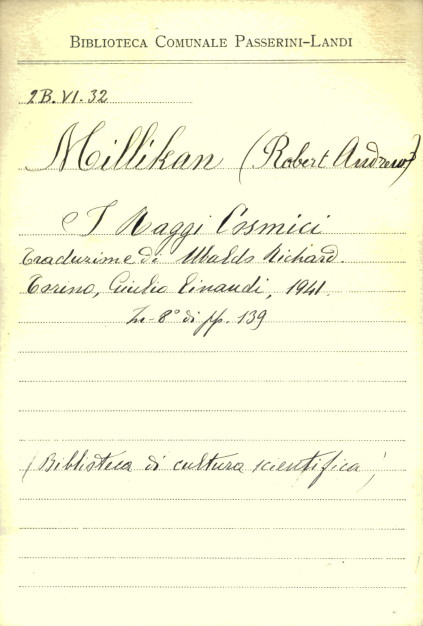 BIBLIOTECA COMUNALE PASSERINI-LANDI
2B.VI.32
Millikan (Robert Andrew)
I Raggi Cosmici
Traduzione di Ubaldo Richard.
Torino, Giulio Einaudi, 1941.
In-8° di pp. 139
(Biblioteca di cultura scientifica)